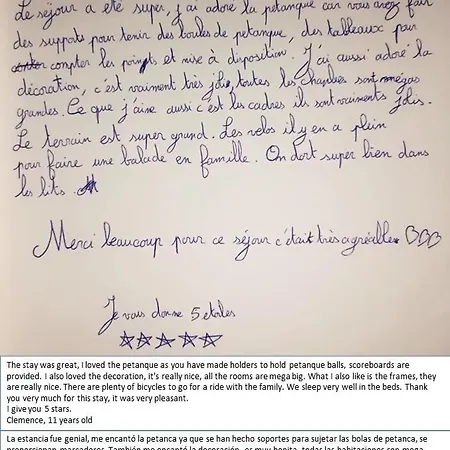 Le séjour a été super, j'ai adoré la petanque car vous avez fait
des supports pour tenir des boules de petanque, des tableaux par
compter les points et mise à disposition. J'ai aussi adoré la
décoration, c'est vraiment très jolie, toutes les sont mégas
grandes. Ce que j'aime aussi c'est les cadres ils sont vraiments jolis.
Le terrain est super grand. Les velos il y en a plein
pour faire une balade en famille. On dort super bien dans
les lits.
Merci beaucoup pour ce séjour c'était très agréable
Je vous donne 5 etoiles
The stay was great, I loved the petanque as you have made holders to hold petanque balls, scoreboards are
provided. I also loved the decoration, it's really nice, all the rooms are mega big. What I also like is the frames, they
are really nice. There are plenty of bicycles to go for a ride with the family. We sleep very well in the beds. Thank
you very much for this stay, it was very pleasant.
I give you 5 stars.
Clemence, 11 years old
La estancia fue genial, me encantó la petanca ya que se han hecho soportes para sujetar las bolas de petanca, se
proporcionan marcadores. También me encantó la decoración, es muy bonita, todas las habitaciones son mega